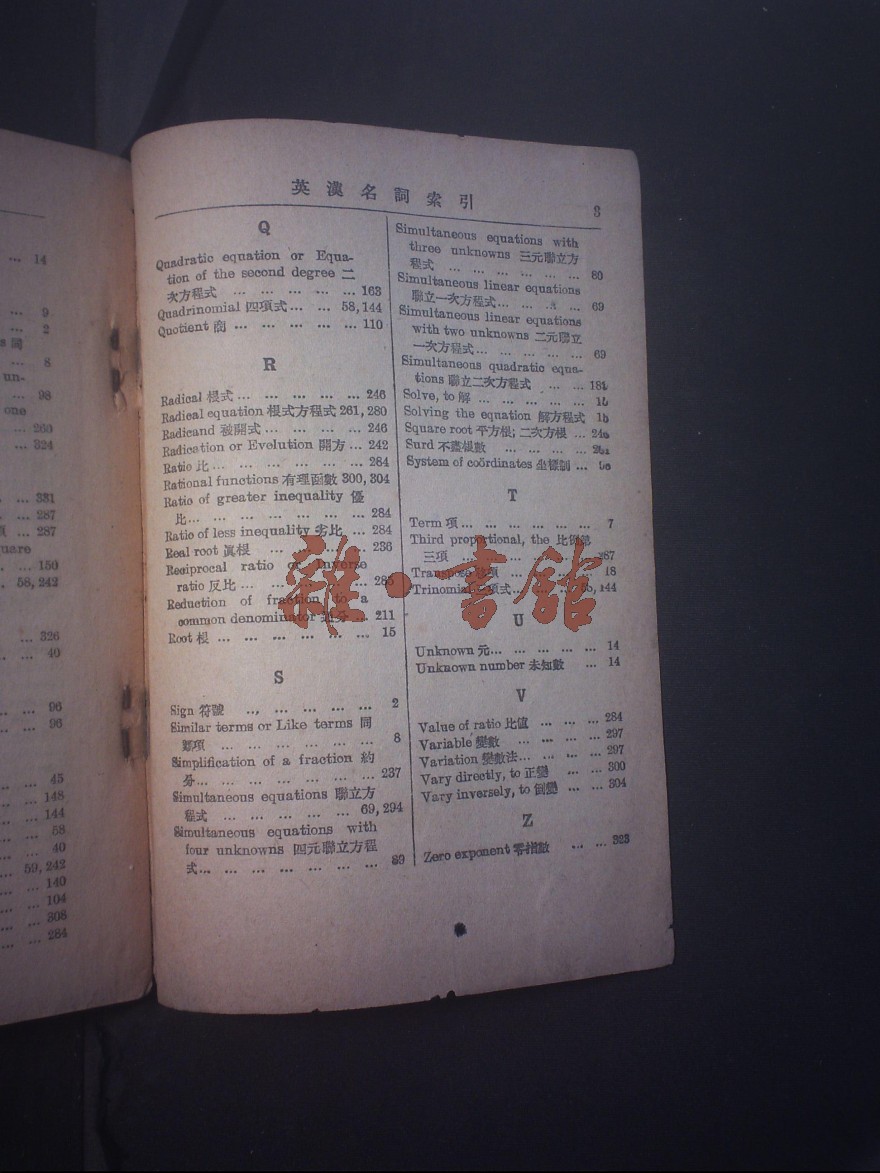 ... 14
9
... 2
8
un-
... 98
one
... 260
... 324
... 331
... 287
... 287
... 150
58, 242
... 326
... 40
... 96
... 96
45
148
144
58
40
59, 242
140
104
308
284
英漢名詞索引
Q
Quadratic equation or Equa-
tion of the second degree 二
次方程式 ... ... ... ... ... 163
Quadrinomial 四項式 ... ... 58, 144
Quotient 商 ... ... ... ... ... 110
R
Radical 根式 ... ... ... ... ... 246
Radical equation 根式方程式 261, 280
Radicand 被開式 ... ... ... ... 246
Radication or Evolution 開方 ... 242
Ratio 比 ... ... ... ... ... ... 284
Rational functions 有理函數 300, 304
Ratio of greater inequality 優
比 ... ... ... ... ... ... ... 284
Ratio of less inequality 劣比 ... 284
Real root 眞根 ... ... ... ... 236
Reciprocal ratio or Inverse
ratio 反比 ... ... ... ... ... 285
Reduction of fraction to a
common denominator 通分 ... 211
Root 根 ... ... ... ... ... ... 15
S
Sign 符號 ... ... ... ... ... 2
Similar terms or Like terms 同
類項 ... ... ... ... ... ... 8
Simplification of a fraction 約
分 ... ... ... ... ... ... ... 237
Simultaneous equations 聯立方
程式 ... ... ... ... ... 69, 294
Simultaneous equations with
four unknowns 四元聯立方程
式 ... ... ... ... ... ... ... 89
Simultaneous equations with
three unknowns 三元聯立方
程式 ... ... ... ... ... ... 89
Simultaneous linear equations
聯立一次方程式 ... ... ... ... 69
Simultaneous linear equations
with two unknowns 二元聯立
一次方程式 ... ... ... ... ... 69
Simultaneous quadratic equa-
tions 聯立二次方程式 ... ...
Solve, to 解 ... ... ... ... ...
Solving the equation 解方程式
Square root 平方根; 二次方根 ...
Surd 不盡根數 ... ... ... ...
System of coördinates 坐標制 ...
T
Term 項 ... ... ... ... ... ... 7
Third proportional, the 比例第
三項 ... ... ... ... ... 287
Transpose 移項 ... ... ... ... 18
Trinomial 三項式 ... ... 144
U
Unknown 元 ... ... ... ... ... 14
Unknown number 未知數 ... 14
V
Value of ratio 比值 ... ... ... 284
Variable 變數 ... ... ... ... 297
Variation 變數法 ... ... ... ... 297
Vary directly, to 正變 ... ... 300
Vary inversely, to 倒變 ... ... 304
Z
Zero exponent 零指數 ... ... 323
雜·書館